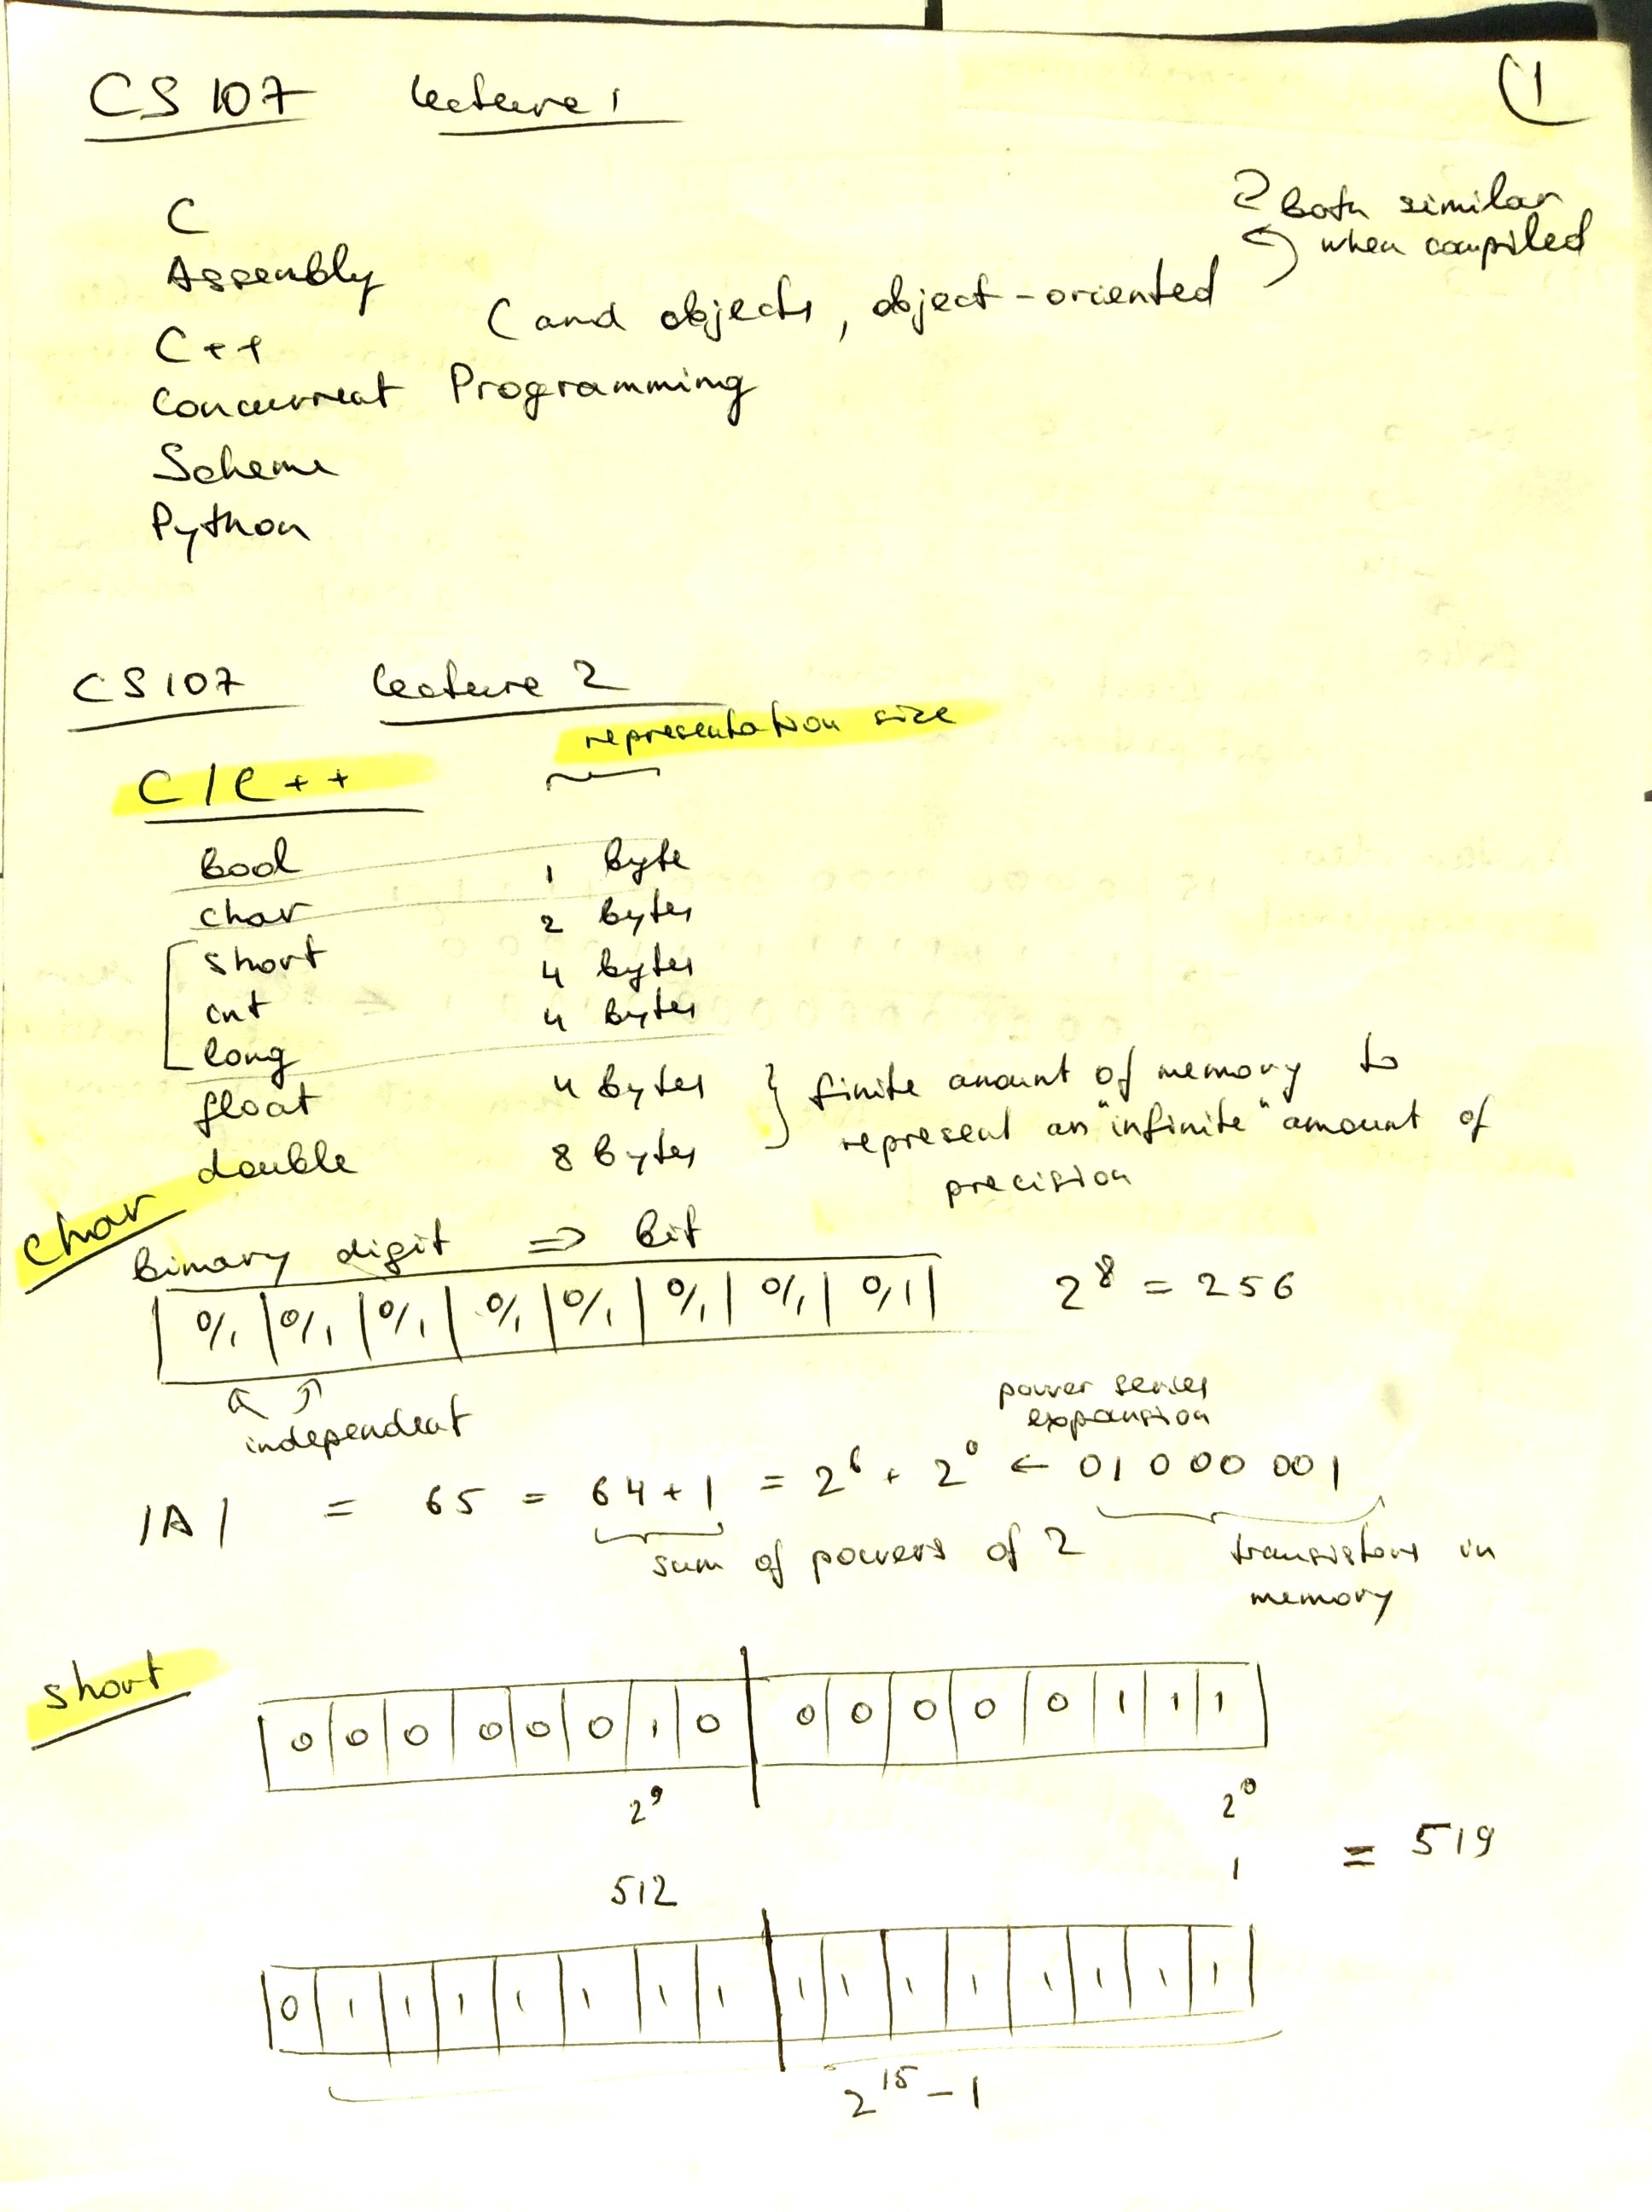 CS 107 lecture 1
(1
C
Assembly
C++ (and objects, object-oriented
2 Both similar
when compiled
Concurrent Programming
Scheme
Python
CS107 lecture 2
representation size
C/C++
Bool 1 byte
char 2 bytes
short 4 bytes
int 4 bytes
long
float 4 bytes } finite amount of memory to
double 8 bytes represent an "infinite" amount of
precision
char
Binary digit ⇒ Bit
0/1 0/1 0/1 0/1 0/1 0/1 0/1 0/1 2^8 = 256
independent
power series
expansion
'A' = 65 = 64+1 = 2^6 + 2^0 ← 01000001
sum of powers of 2 transistors in
memory
short
0 0 0 0 0 0 1 0 0 0 0 0 0 1 1 1
2^9 2^0
512 1 = 519
0 1 1 1 1 1 1 1 1 1 1 1 1 1 1 1
2^15 - 1